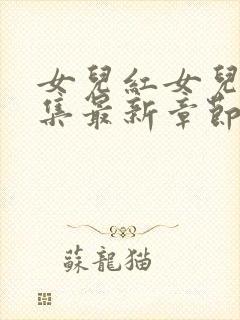 女兒紅女兒
集最新章節
蘇龍猫